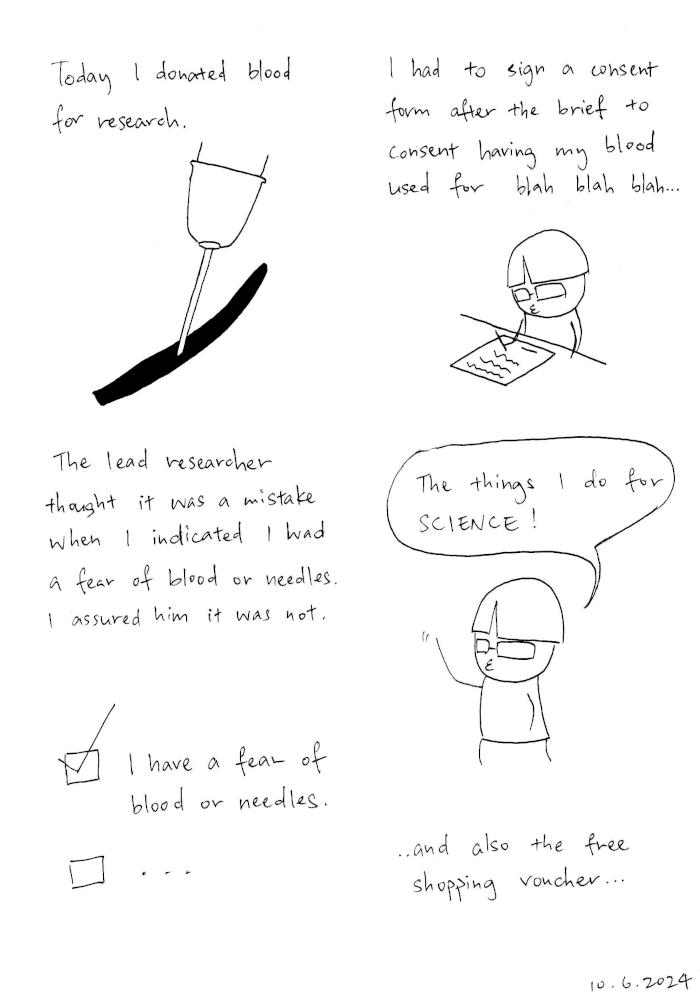 Today I donated blood
for research.
I had to sign a consent
form after the brief to
consent having my blood
used for blah blah blah...
The lead researcher
thought it was a mistake
when I indicated I had
a fear of blood or needles.
I assured him it was not.
I have a fear of
blood or needles.
...
The things I do for
SCIENCE!
..and also the free
shopping voucher...
10.6.2024